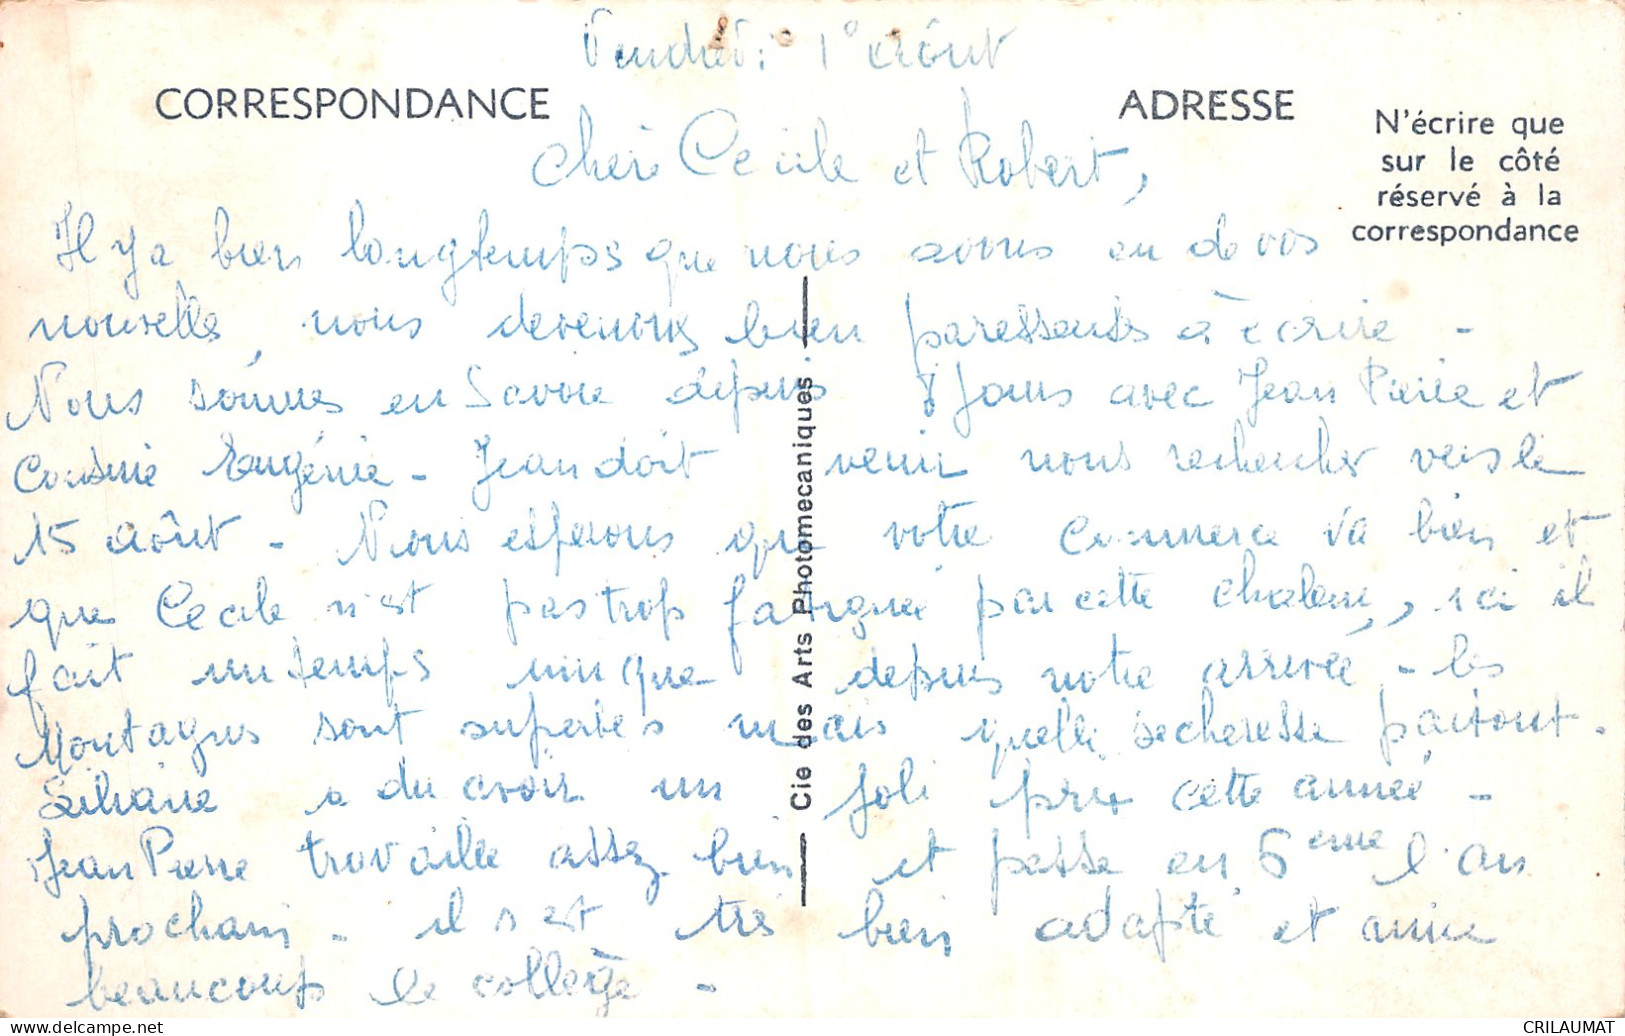 Vendredi 1° août
CORRESPONDANCE
ADRESSE
N'écrire que
sur le côté
réservé à la
correspondance
Cheri Cecile et Robert,
Il y a bien longtemps que nous avons eu de vos
nouvelle, nous devenons bien paressants à écrire -
Nous sommes en Savoie depuis 8 Jours avec Jean Pierre et
Cousine Eugénie - Jean doit venir nous rechercher vers le
15 août - Nous esperons que votre Commerce va bien et
que Cecile n'est pas trop fatiguée par cette chaleur, ici il
fait un temps unique depuis notre arrivée - les
Montagnes sont superbes mais quelle secheresse partout.
Liliane a du avoir un Joli prix cette année -
Jean Pierre travaille assez bien et passe en 6eme l'an
prochain - il s'est très bien adapté et aime
beaucoup le collège -
Cie des Arts Photomecaniques
CRILAUMAT